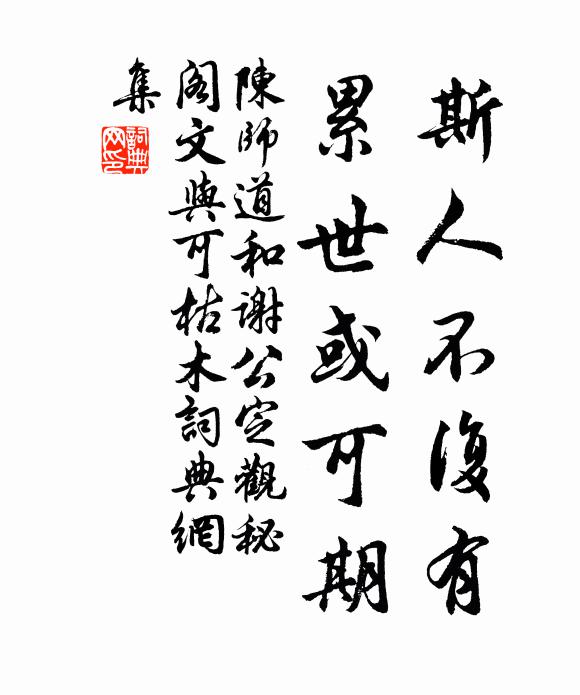 斯人不復有
累世或可期
陳師道和謝公定觀秘
閣文與可枯木詞典網
集
詞典
網印